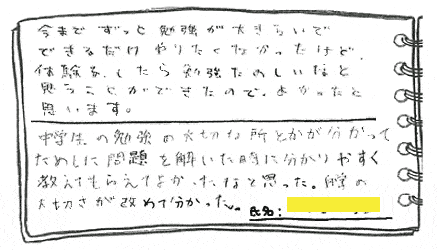 今までずっと勉強が大きらいで
できるだけやりたくなかったけど、
体験をしたら勉強たのしいなと
思うことができたので、よかったと
思います。
中学生の勉強の大切な所とかが分かって
ためしに問題を解いた時に分かりやすく
教えてもらえてよかったなと思った。の
大切さが改めて分かった。 氏名: